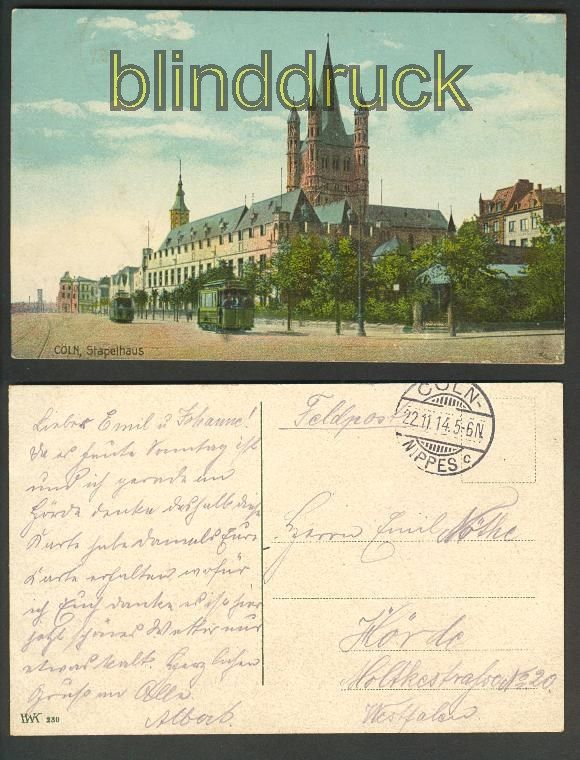 blinddruck
CÖLN, Stapelhaus
Lieber Emil u Johanne!
Da es heute Sonntag ist
und ich gerade an
Hörde denke deshalb diese
Karte habe damals Eure
Karte erhalten wofür
ich Euch danke es ist hier
jetzt schönes Wetter nur
etwas kalt. Herzlichen
Gruß an Alle
Albert.
HWK 230
Feldpost
CÖLN-
22.11.14.5-6N.
NIPPES c
Herrn Emil Nölke
Hörde
Moltkestrasse No 20.
Westfalen